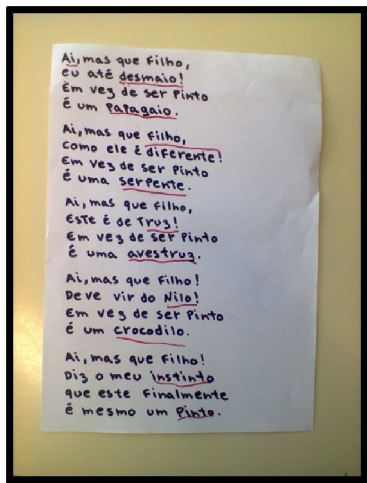 Ai, mas que Filho,
eu até desmaio!
Em vez de ser Pinto
é um Papagaio.
Ai, mas que Filho,
como ele é diferente!
Em vez de ser Pinto
é uma serpente.
Ai, mas que Filho,
Este é de Truz!
Em vez de ser Pinto
é uma avestruz.
Ai, mas que Filho!
Deve vir do Nilo!
Em vez de ser Pinto
é um crocodilo.
Ai, mas que Filho!
Diz o meu instinto
que este Finalmente
é mesmo um Pinto.